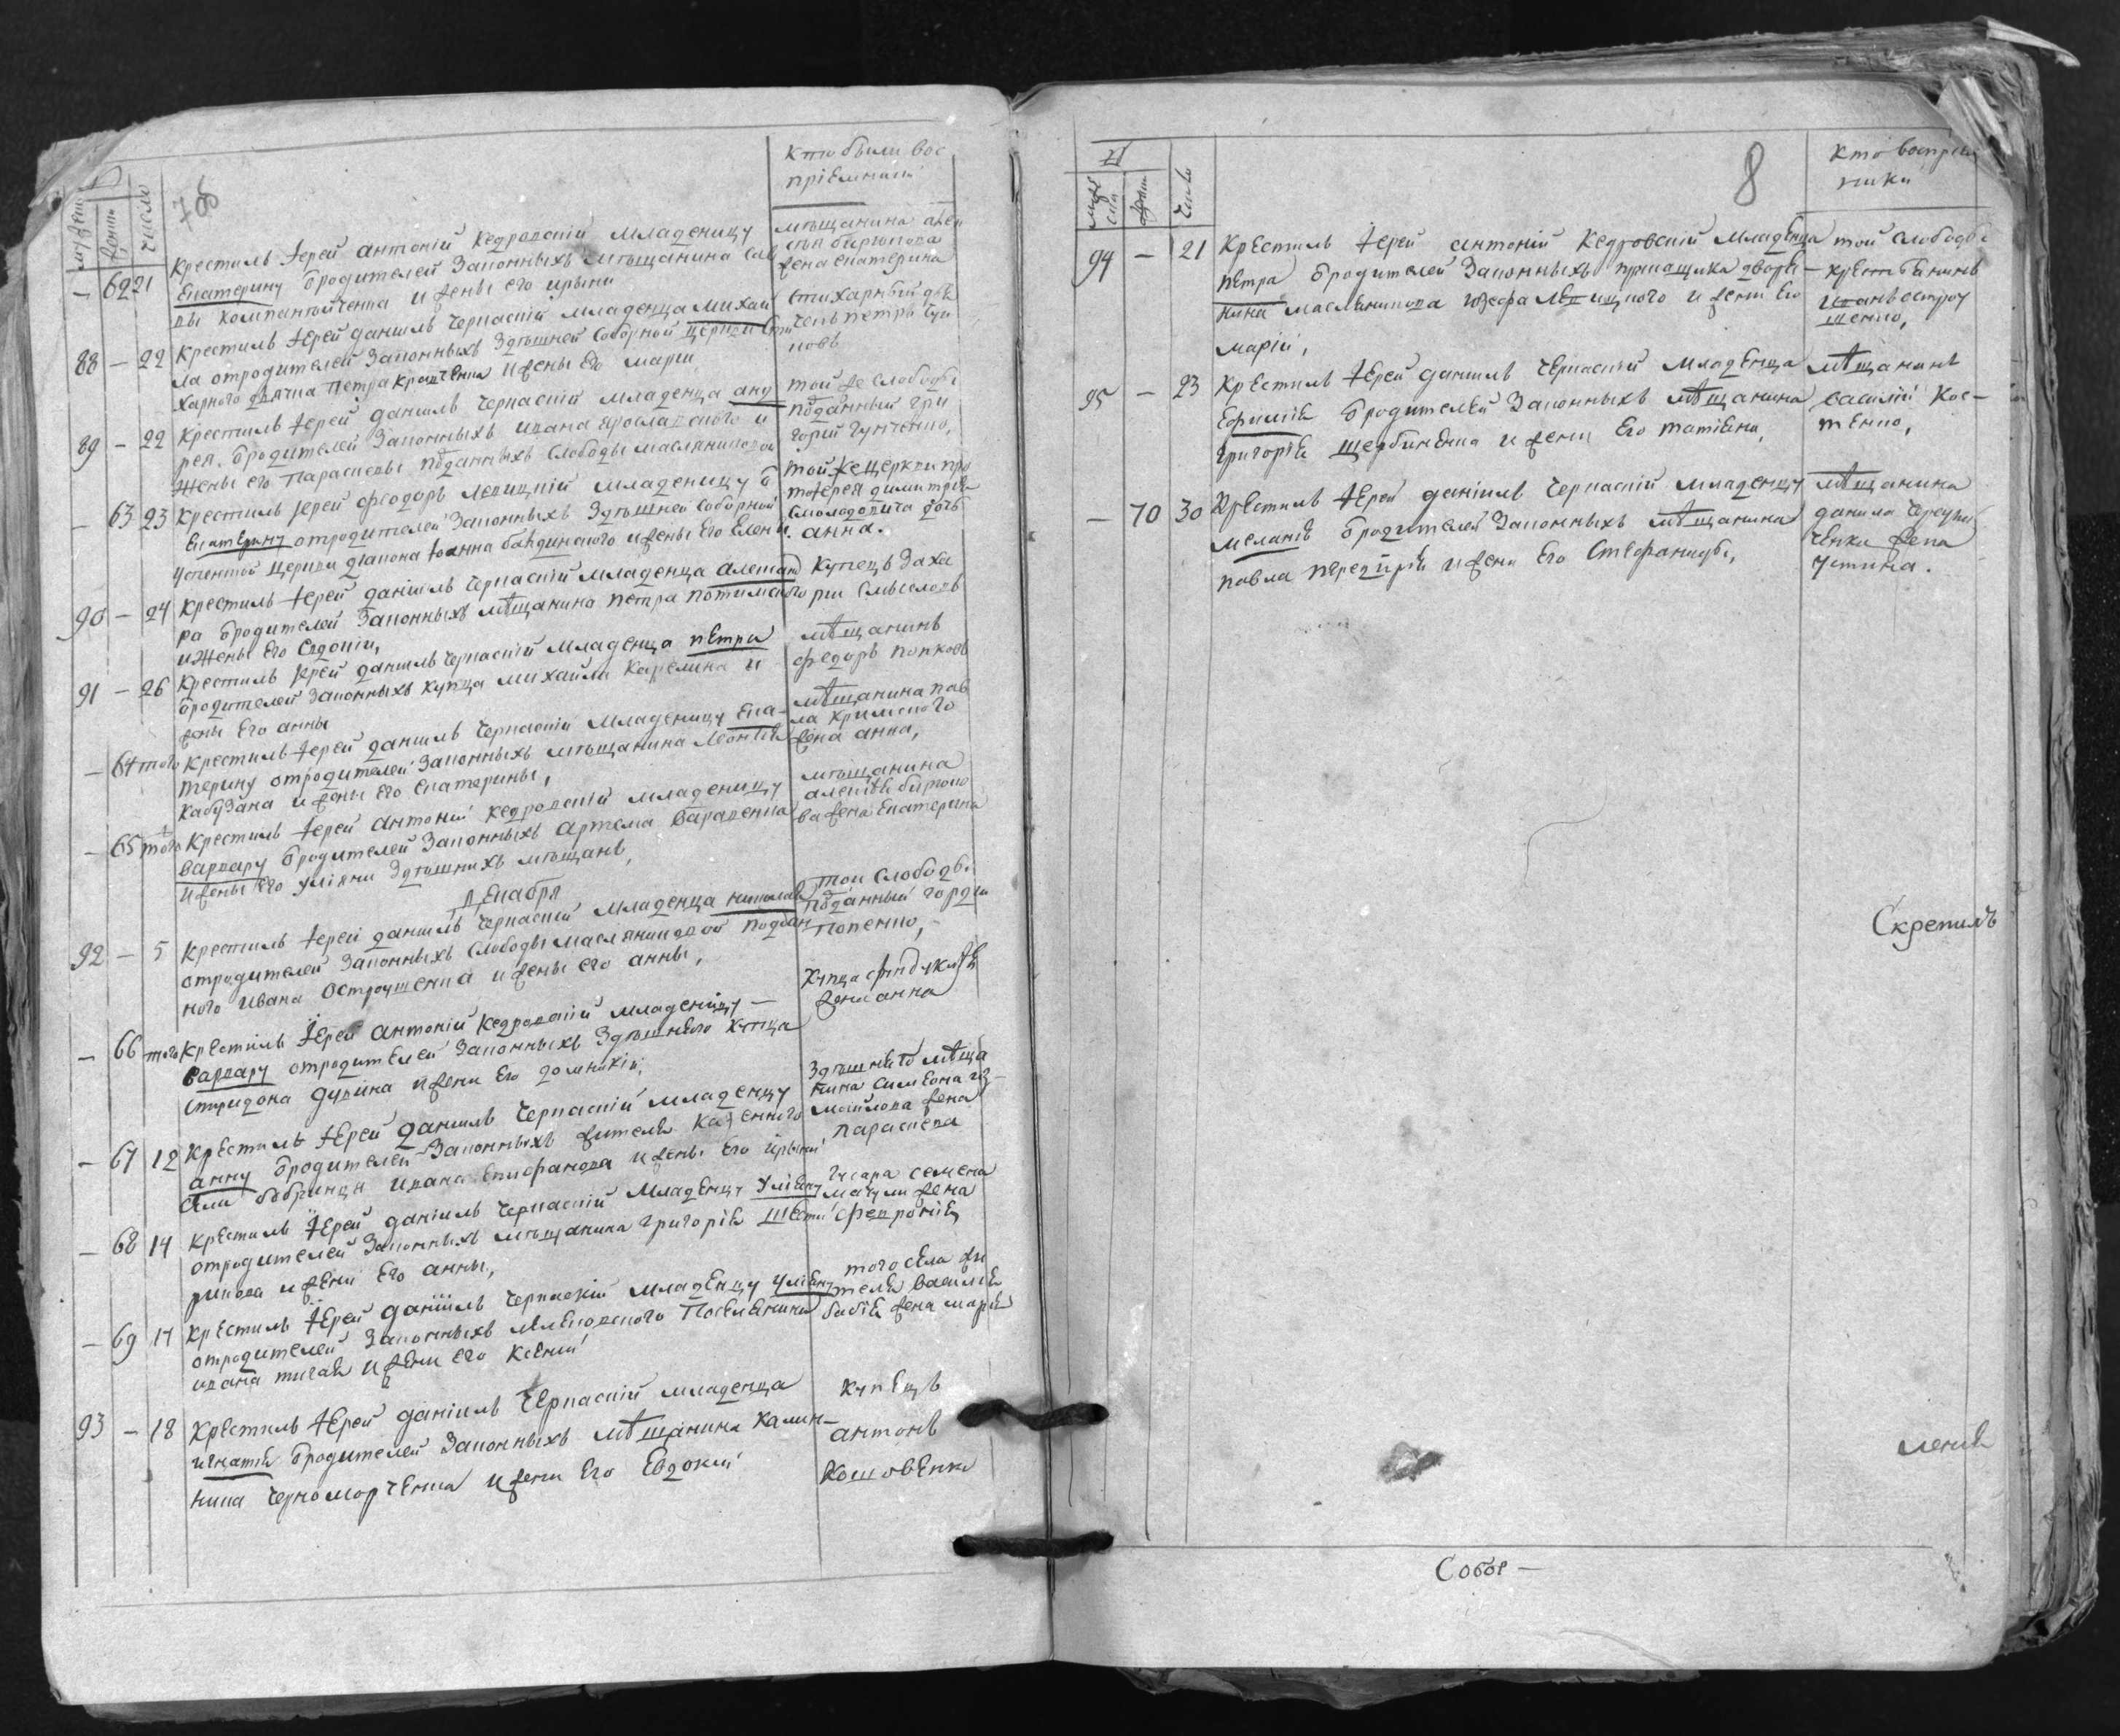 7об
кто были вос
пріемники
мужеск
женск
число
— 62 21 Крестилъ іерей антоній Кедровскій младеницу
Екатерину ѿродителей законныхъ мѣщанина Сав
вы Компанѣйченка и жены его ирыны
мѣщанина алек
сѣя бирюкова
жена екатерина
88 — 22 Крестилъ іерей даниилъ Черкаскій младенца Михаи
ла отродителей законныхъ здѣшней соборной церкви сти
харного дячка Петра Кравченка и жены его марии
стихарный дья
чекъ петръ
новъ
89 — 22 Крестилъ іерей даниилъ Черкаскій младенца анд
рея ѿродителей законныхъ ивана ярославского и
жены его Параскевы пѡданныхъ слободы маслениковой
той же слободы
пѡданный гри
горій Гунченко,
— 63 23 Крестилъ іерей феодоръ Левицкій младеницу
Екатерину отродителей законныхъ здѣшней соборной
успенской церкви діакона Іоанна бандинского и жены его Елены.
той же церкви про
тоіерея димитрія
Смолодовича дочь
анна.
90 — 24 Крестилъ іерей даніилъ Черкаскій младенца александ
ра ѿродителей законныхъ мѣщанина петра потимского
и жены его Євдокіи,
Купецъ Заха
рии Смыселовъ
91 — 26 Крестилъ іерей даниилъ Черкаскій младенца петра
ѿродителей законныхъ купца михаила Карелина и
жены его анны
мѣщанинъ
федоръ попковъ
— 64 того Крестилъ іерей даниилъ Черкаскій младеницу Ека-
терину отродителей законныхъ мѣщанина Леонтія
Кабузана и жены его екатерины,
мѣщанина пав
ла кримского
жена анна,
— 65 того Крестилъ іерей антоній Кедровскій младеницу
варвару ѿродителей законныхъ артема Варавенка
и жены его уліяни здѣшнихъ мѣщанъ,
мѣщанина
алексѣя бирюко
ва жена Екатерина
Декабря
92 — 5 Крестилъ іерей даниилъ Черкаскій младенца николая
отродителей законныхъ слободы маслениковой поддан
ного ивана острушенка и жены его анны,
той слободы
пѡданный гордѣй
Попенко,
— 66 того Крестилъ іерей антоній Кедровскій младеницу —
варвару отродителей законныхъ здѣшнего купца
спиридона дудина и жены его домникіи,
купца
жена анна
— 67 12 Крестилъ іерей даниилъ Черкаскій младенцу
анну ѿродителей законныхъ жителя казенного
села бобринца ивана епифанова и жены его ирыны
здѣшнего мѣща
нина симеона из
моилова жена
параскева
— 68 14 Крестилъ іерей даніилъ Черкаскій младенцу уліяну
отродителей законныхъ мѣщанина григорія Шести
рикова и жены его анны,
гусара семена
мацули жена
февронія
— 69 17 Крестилъ іерей даніилъ Черкаскій младенцу уліяну
отродителей законныхъ поселянина
ивана тигая и жены его ксении
того села жи
теля василия
бабія жена марія
93 — 18 Крестилъ іерей даніилъ Черкаскій младенца
игнатія ѿродителей законныхъ мѣщанина Калин-
ника черноморченка и жены его Евдокии
купецъ
антонъ
Кошовенко
8
кто воспріем
ники
мужеска
женск
число
94 — 21 Крестилъ іерей антоній Кедровскій младенца
петра ѿродителей законныхъ прикащика дворя-
нина масленикова иозефа Левицкого и жены его
маріи,
той слободы
крестянинъ
иванъ остроу
шенко,
95 — 23 Крестилъ іерей даниилъ Черкаскій младенца
Ефимія ѿродителей законныхъ мѣщанина
григорія щербиненка и жены его татіяни,
мѣщанинъ
василій Кос-
тенко,
— 70 30 Крестилъ іерей даніилъ Черкаскій младенцу
меланію ѿродителей законныхъ мѣщанина
павла передирія и жены его Стефаниды,
мѣщанина
данила
ченка жена
устина.
Скрепилъ
Собор —